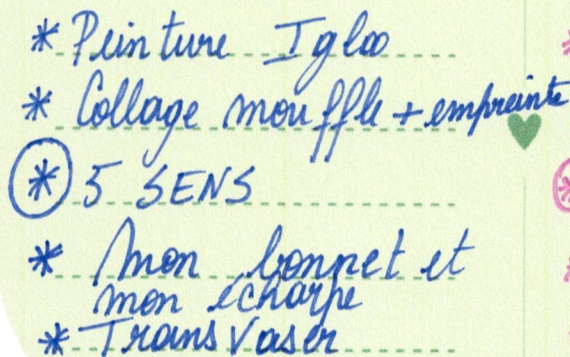 * Peinture Igloo
* Collage mouffle + empreinte
* 5 SENS
* mon bonnet et
mon écharpe
* Transvaser